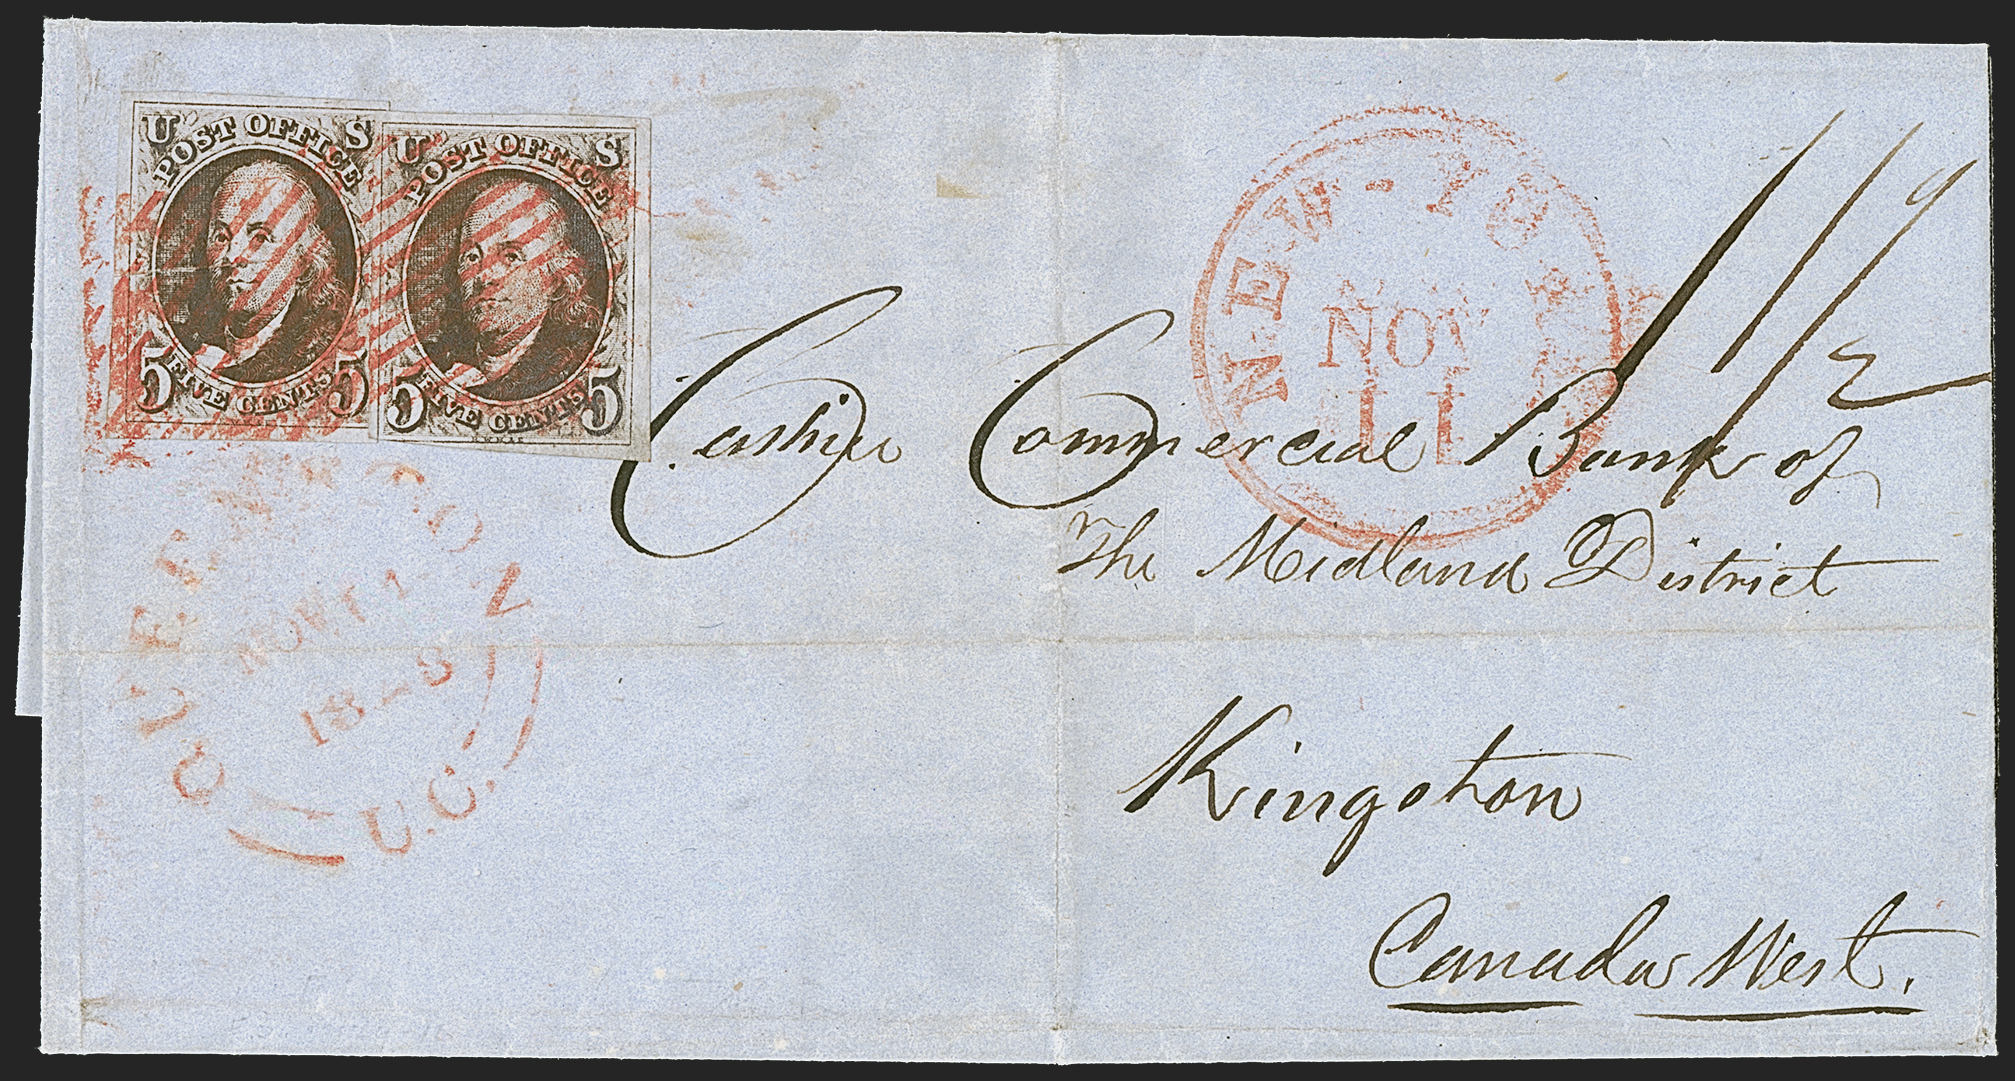 U S
POST OFFICE
5 FIVE CENTS 5
U S
POST OFFICE
5 FIVE CENTS 5
NEW-YORK
NOV
11
1/1½
Cashier Commercial Bank of
The Midland District
Kingston
Canada West.
QUEENSTON
NOV 1
18-8
U.C.